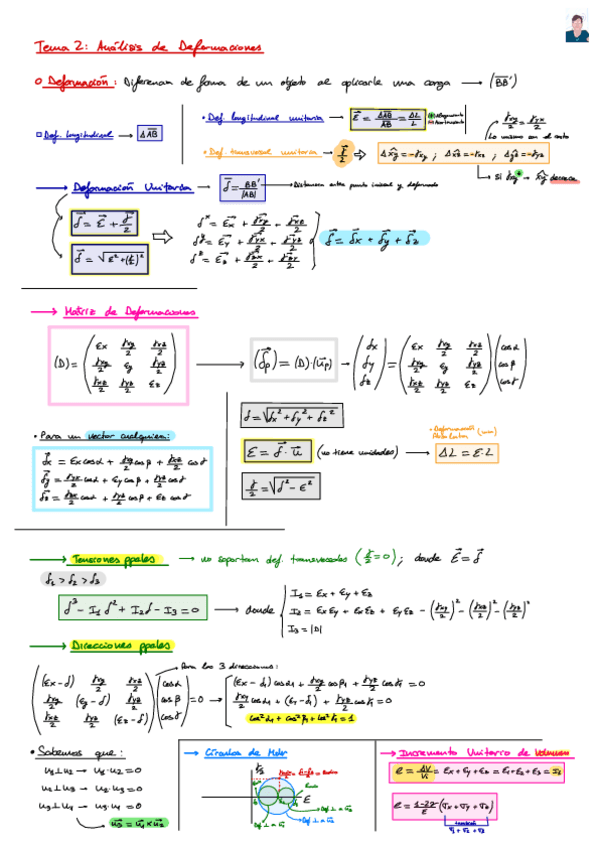 Tema 2: Análisis de Deformaciones
Deformación: Diferencia de forma de un objeto al aplicarle una carga → (BB')
Def. longitudinal → ΔAB
• Def. longitudinal unitaria → ε = ΔAB/AB = ΔL/L ⊕ Alargamiento ⊖ Acortamiento
γxy/2 = γyx/2
Lo mismo con el resto
• Def. transversal unitaria → γ/2 ⇨ Δxy = -γxy ; Δxz = -γxz ; Δyz = -γyz
Si γxy ⊕ → xy decrece
→ Deformación Unitaria → δ = BB'/|AB| → Distancia entre punto inicial y deformado
δ = ε + γ/2
δ = √(ε² + (γ/2)²)
δx = εx + γxy/2 + γxz/2
δy = εy + γyx/2 + γyz/2
δz = εz + γzx/2 + γzy/2
δ = δx + δy + δz
→ Matriz de Deformaciones
(D) = ( εx γxy/2 γxz/2 ; γxy/2 εy γyz/2 ; γxz/2 γyz/2 εz )
→ (δp) = (D)·(up) → (δx ; δy ; δz) = ( εx γxy/2 γxz/2 ; γxy/2 εy γyz/2 ; γxz/2 γyz/2 εz ) (cosα ; cosβ ; cosγ)
• Para un vector cualquiera:
δx = εx cosα + γxy/2 cosβ + γxz/2 cosγ
δy = γyx/2 cosα + εy cosβ + γyz/2 cosγ
δz = γxz/2 cosα + γyz/2 cosβ + εz cosγ
δ = √(δx² + δy² + δz²)
ε = δ · u (no tiene unidades) →
• Deformación Absoluta (mm)
ΔL = ε·L
γ/2 = √(δ² - ε²)
→ Tensiones ppales → no soportan def. transversales (γ/2 = 0); donde ε = δ
δ1 > δ2 > δ3
δ³ - I1 δ² + I2 δ - I3 = 0 → donde
I1 = εx + εy + εz
I2 = εx εy + εx εz + εy εz - (γxy/2)² - (γxz/2)² - (γyz/2)²
I3 = |D|
→ Direcciones ppales
Para las 3 direcciones:
( (εx - δ) γxy/2 γxz/2 ; γxy/2 (εy - δ) γyz/2 ; γxz/2 γyz/2 (εz - δ) ) (cosα ; cosβ ; cosγ) = 0 →
(εx - δ1) cosα1 + γxy/2 cosβ1 + γxz/2 cosγ1 = 0
γxy/2 cosα1 + (εy - δ1) + γyz/2 cosγ1 = 0
cos²α1 + cos²β1 + cos²γ1 = 1
• Sabemos que:
u1⊥u2 → u1·u2 = 0
u2⊥u3 → u2·u3 = 0
u3⊥u1 → u3·u1 = 0
u3 = u1 × u2
→ Círculos de Mohr
γ/2
ε
Def ⊥ a u1
→ Incremento Unitario de Volumen
e = ΔV/Vi = εx + εy + εz = ε1 + ε2 + ε3 = I1
e = (1-2ν)/E (σx + σy + σz)
también
σ1 + σ2 + σ3